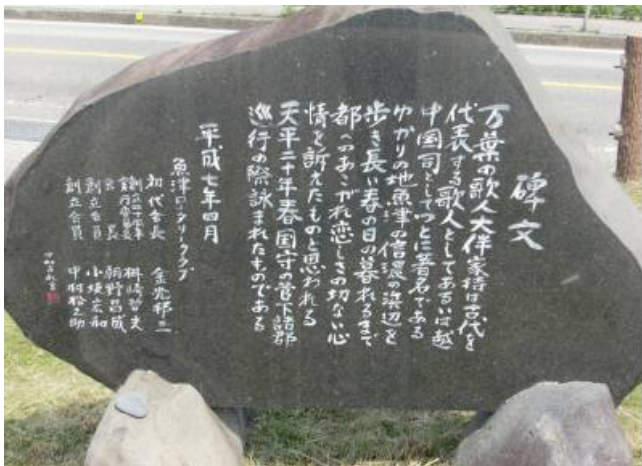 碑文
万葉の歌人大伴家持は古代を
代表する歌人としてあるいは越
中国司としてつとに著名である
ゆかりの地魚津の信濃の浜辺を
歩き長い春の日の暮れるまで
都へのあこがれ恋しさの切ない心
情を訴えたものと思われる
天平二十年春国守の管下諸郡
巡行の際詠まれたものである
平成七年四月
魚津ロータリークラブ
初代会長
会長
創立会員 小坂宏和
創立会員 中村裕之助